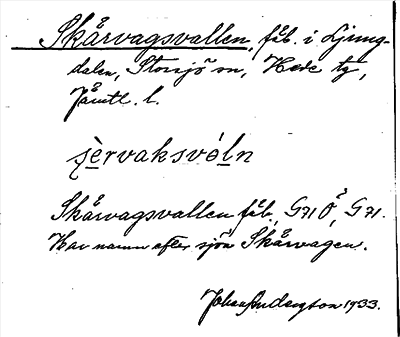 Skårvagsvallen, fäb. i Ljung-
dalen, Storsjö sn, Hede tg,
Jämtl. l.
sèrvaksvóln
Skårvagsvallen fäb., G71 Ö, G71.
Har namn efter sjön Skårvagen.
Johan Andersson 1933.